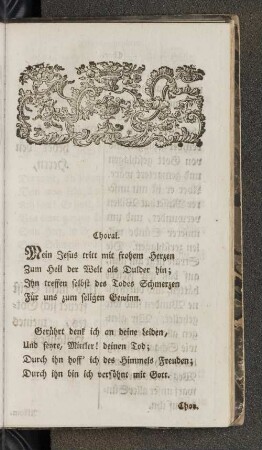 Choral.
Mein Jesus tritt mit frohem Herzen
Zum Heil der Welt als Dulder hin;
Ihn treffen selbst des Todes Schmerzen
Für uns zum seligen Gewinn.
Gerührt denk' ich an deine Leiden,
Und feyre, Mittler! deinen Tod;
Durch ihn hoff' ich des Himmels Freuden;
Durch ihn bin ich versöhnt mit Gott.
Chor.